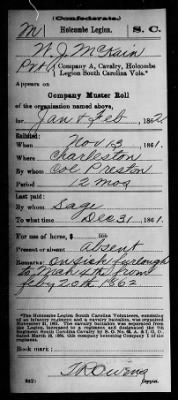 (Confederate.)
M Holcombe Legion. S. C.
W. J. McKain
Pvt, Company A, Cavalry, Holcombe
Legion South Carolina Vols.*
Appears on
Company Muster Roll
of the organization named above,
for Jan & Feb, 1862
Enlisted:
When Nov 13, 1861.
Where Charleston
By whom Col Preston
Period 12 mos
Last paid:
By whom Sage
To what time Dec 31, 1861.
For use of horse, $
Present or absent Absent
Remarks: on sick furlough
to Mch 5th from
Feby 20th 1862
*The Holcombe Legion South Carolina Volunteers, consisting
of an infantry regiment and a cavalry battalion, was organized
November 21, 1861. The cavalry battalion was separated from the
Legion, increased to a regiment, and designated the 7th
Regiment South Carolina Cavalry by S. O. No.
dated March 18, 1864,
Book mark:
T R Owens
(642) Copyist.